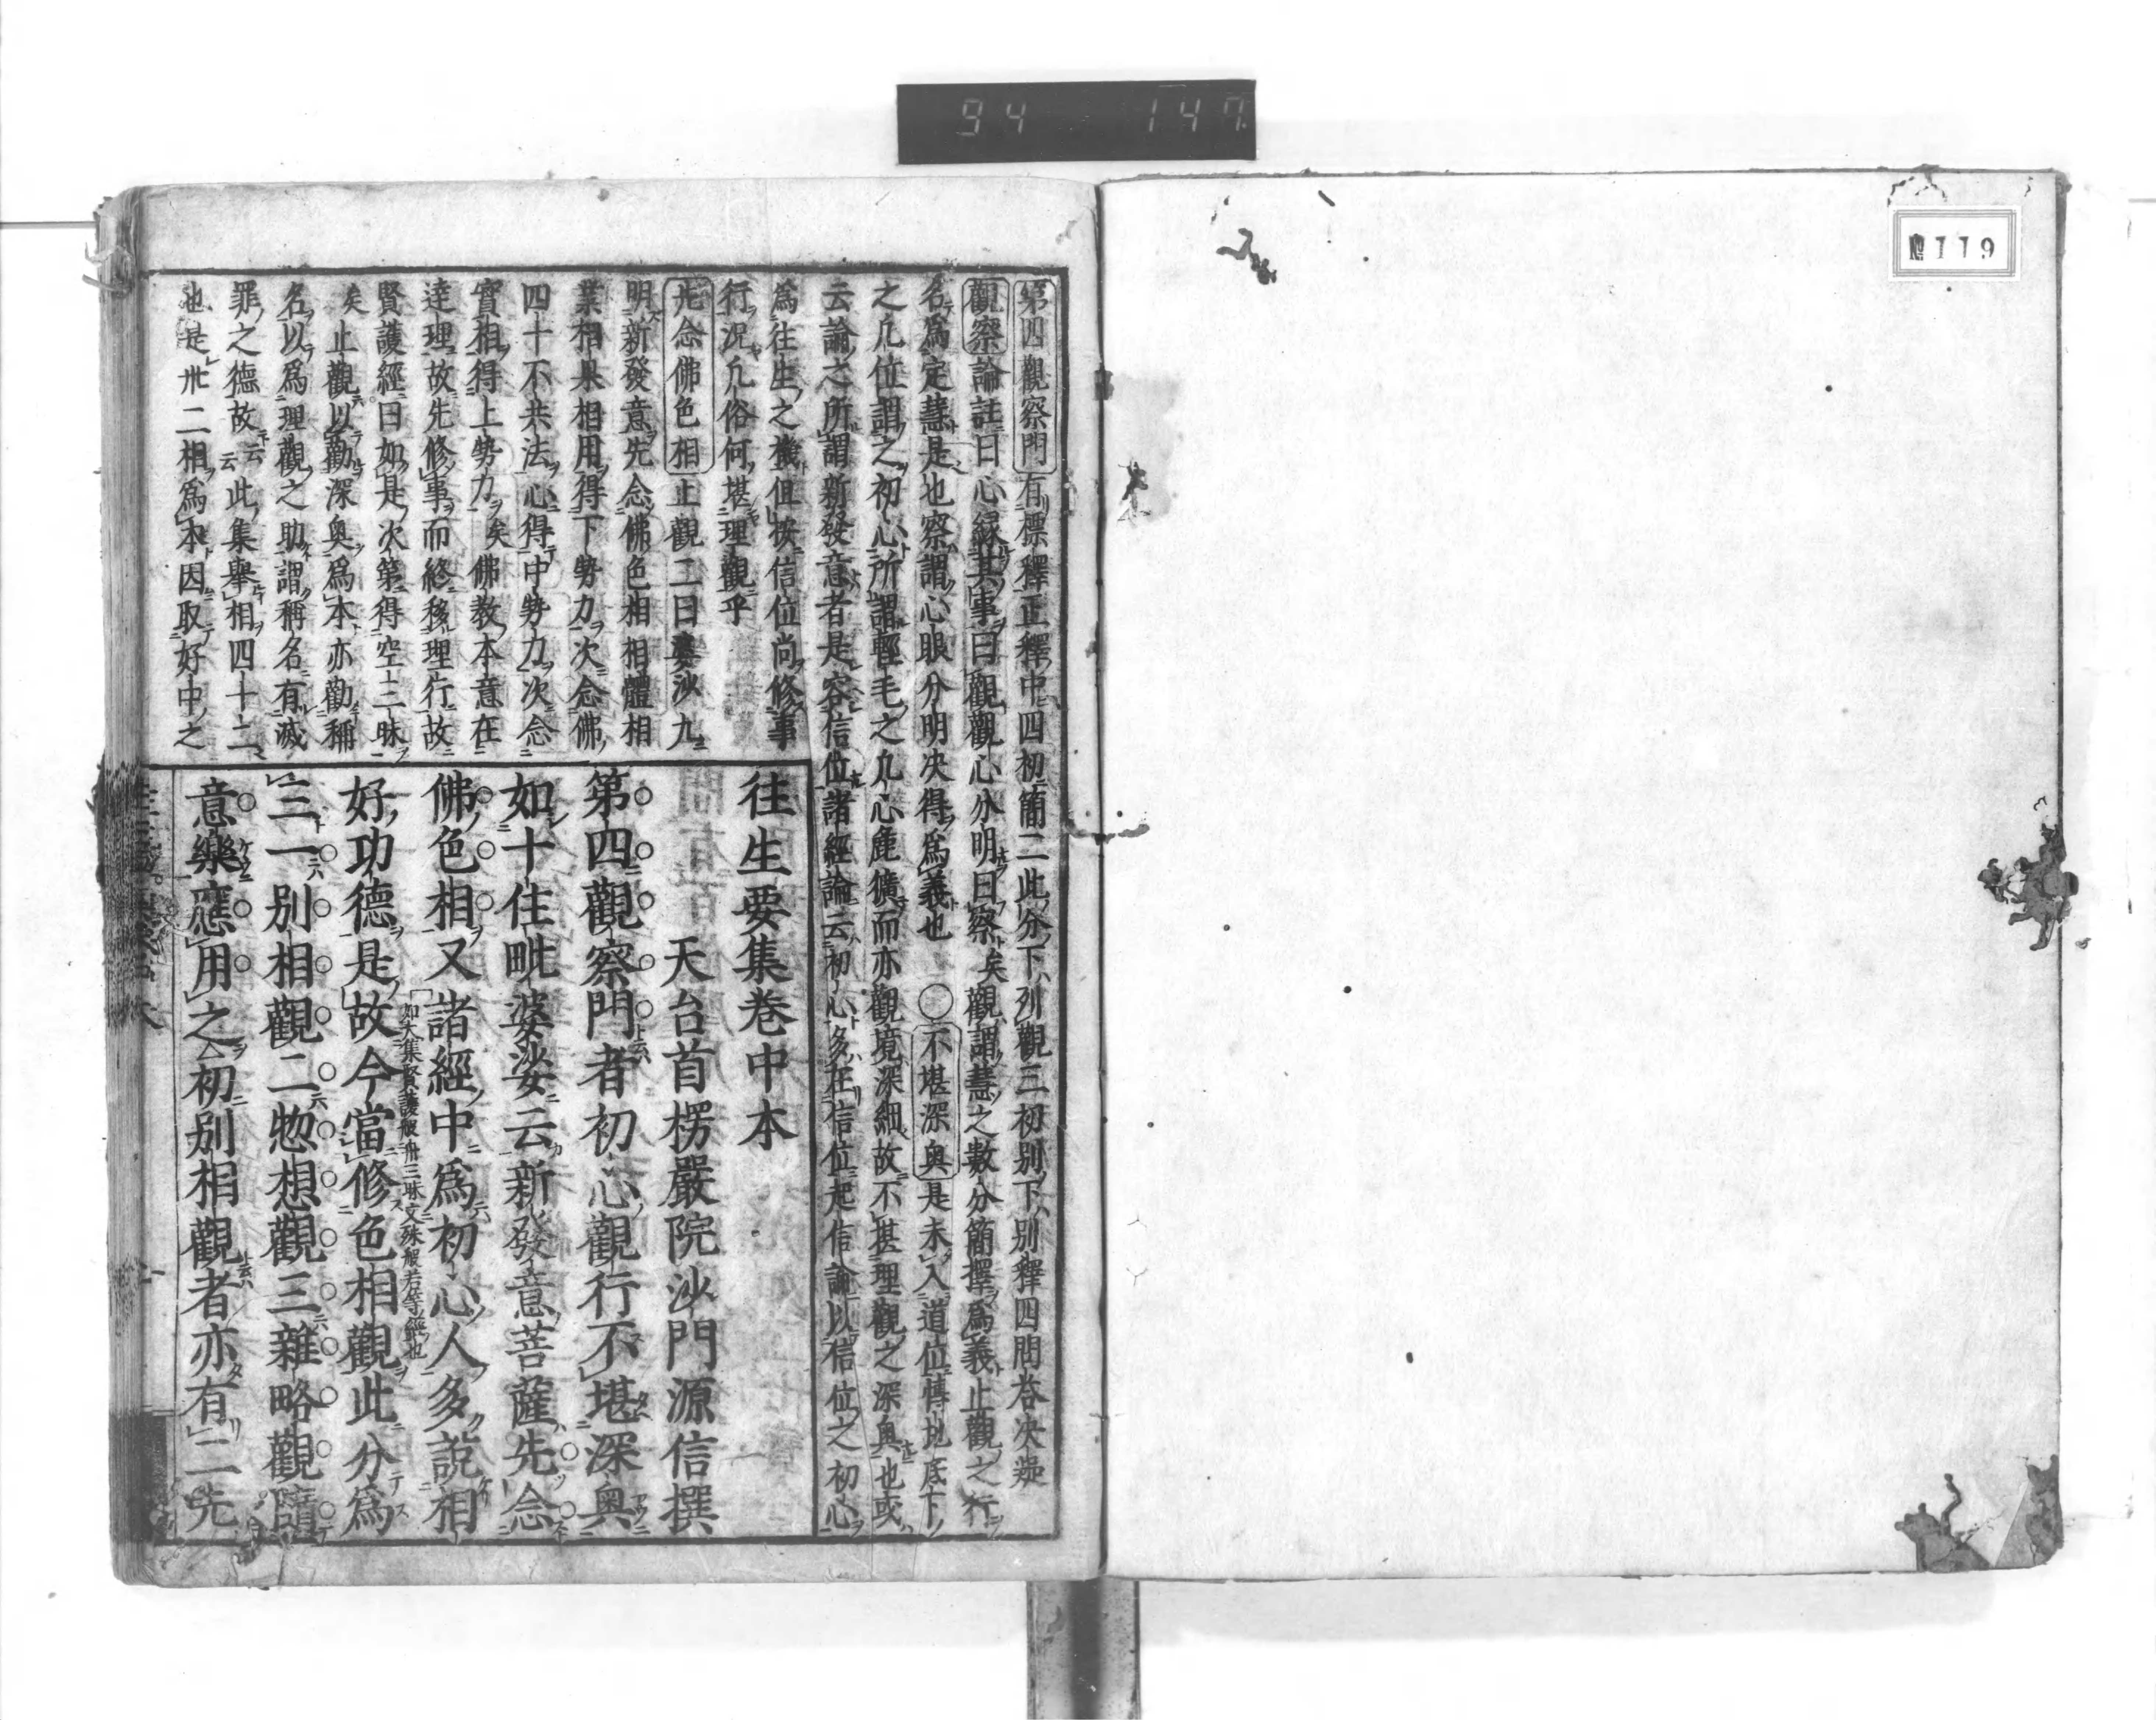 94 147
119
第四觀察門有標釋正釋中四初簡二此分下列觀三初別下別釋四問答決疑
觀察論註曰心緣其事曰觀觀心分明曰察矣觀謂慧之數分簡擇爲義止觀之行
名爲定慧是也察謂心眼分明決得爲義也○不堪深奥是未入道位慱地底下
之凡位謂之初心所謂輕毛之凡心麁獷而亦觀境深細故不甚理觀之深奥也或
云論之所謂新發意者是容信位諸經論云初心多在信位起信論以信位之初心
爲往生之機但按信位尚修事
行況凡俗何堪理觀乎
先念佛色相止觀二曰婆沙九
明新發意先念佛色相相體相
業相果相用得下勢力次念佛
四十不共法心得中勢力次念
實相得上勢力矣佛教本意在
達理故先修事而終移理行故
賢護經曰如是次第得空三昧
矣止觀以勸深奥爲本亦勸稱
名以爲理觀之助謂稱名有滅
罪之德故云云此集擧相四十二
也是卅二相爲本因取好中之
往生要集卷中本
天台首楞嚴院沙門源信撰
第四觀察門者初心觀行不堪深奥
如十住毗婆娑云新發意菩薩先念
佛色相又諸經中爲初心人多說相
如大集賢護般舟三昧文殊般若等經也
好功德是故今當修色相觀此分爲
三一別相觀二惣想觀三雜略觀隨
意樂應用之初別相觀者亦有二先